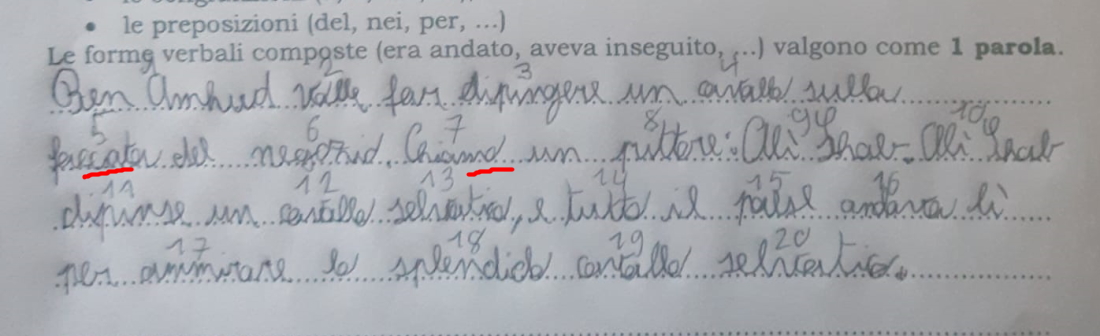 • le preposizioni (del, nei, per, ...)
Le forme verbali composte (era andato, aveva inseguito, ...) valgono come 1 parola.
1 2 3 4
Ben Amhud volle far dipingere un cavallo sulla
5 6 7 8 9 10
facciata del negozio. Chiamò un pittore: Alì Shar. Alì Shar
11 12 13 14 15 16
dipinse un cavallo selvatico, e tutto il paese andava lì
17 18 19 20
per ammirare lo splendido cavallo selvatico.